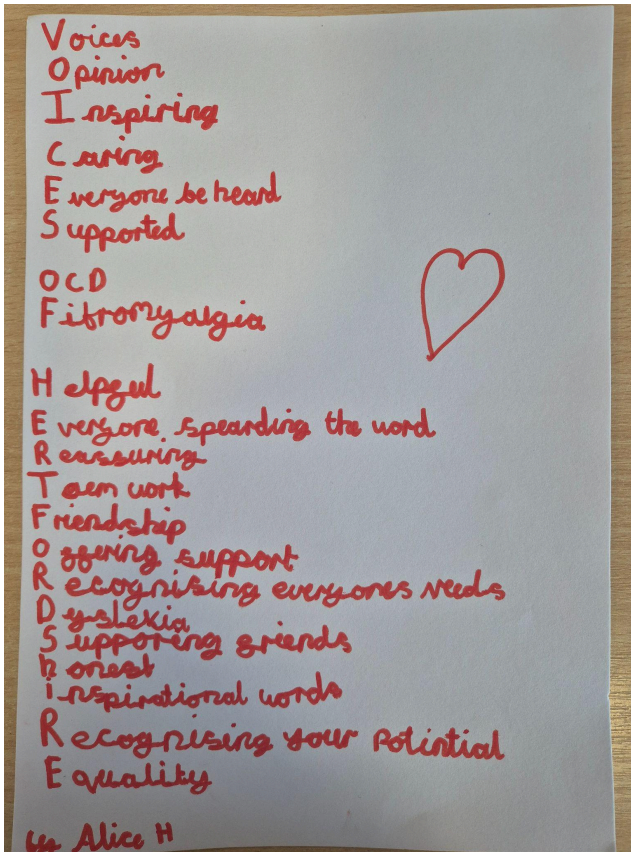 Voices
Opinion
Inspiring
Caring
Everyone be heard
Supported
OCD
Fibromyalgia
Helpful
Everyone spearding the word
Reassuring
Taem work
Friendship
Offering support
Recognising everyones needs
Dyslexia
Supporing friends
honest
inspirational words
Recognising your Potintial
Equality
by Alice H